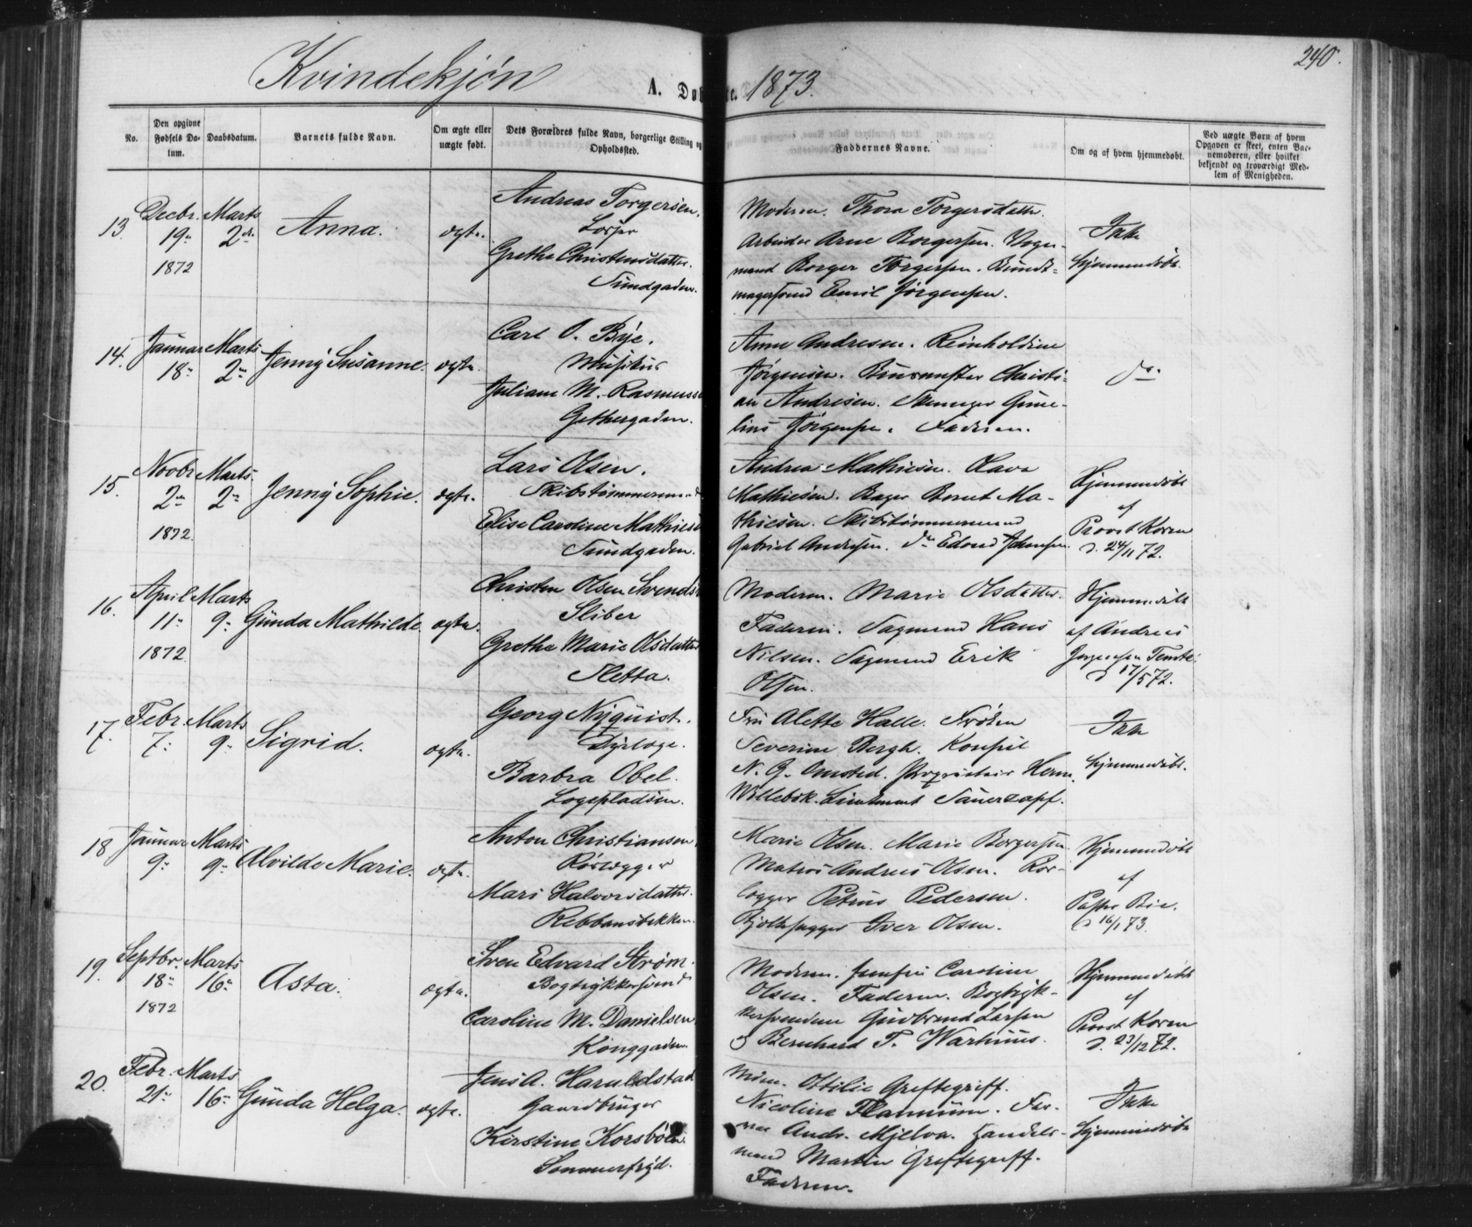 Kvindekjön
1873.
240.
A. Dø
te.
No.
Den opgivne Fødsels Datum.
Daabsdatum.
Barnets fulde Navn.
Om ægte eller uægte født.
Dets Forældres fulde Navn, borgerlige Stilling og Opholdssted.
Faddernes Navne.
Om og af hvem hjemmedøbt.
Ved uægte Børn af hvem Opgaven er skeet, enten Barnemoderen, eller hvilket bekjendt og troværdigt Medlem af Menigheden.
13.
Decbr. 19. 1872
Marts 2
Anna.
ægte.
Andreas Torgersen.
Grethe Christensdatter.
Sundgaden.
Moderen. Thora Torgersdatter.
Arbeider Arne Borgersen.
mand Borger Torgersen.
Emil Jørgensen.
Ikke
hjemmedøbt.
14.
Januar 18
Marts 2
Jenny Susanne.
ægte.
Carl O. Bye.
Musikus
Juliane M. Rasmuss
Gethergaden.
Anne Andresen. Reinholdine
Jørgensen. Buntmaster Christi-
an Andresen.
Jørgensen. Faderen.
Do
15.
Novbr. 2 1872
Marts 2
Jenny Sophie.
ægte.
Lars Olsen.
Skibstømmermand
Elise Caroline Mathies
Sundgaden.
Andrea Mathiesen. Olava
Mathiesen. Bager Bernt Ma-
thiesen. Skibstømmermænd
Gabriel Andresen. Do Edvard Johansen.
Hjemmedøbt
af
Provst Koren
d. 24/11 72.
16.
April 11 1872
Marts 9
Gunda Mathilde
ægte.
Christen Olsen Svends
Sliber
Grethe Marie Olsdatter
Kletta.
Moderen. Marie Olsdatter.
Faderen. Sagmand Hans
Nilsen. Sagmand Erik
Olsen.
Hjemmedøbt
af Andreas
Jørgensen
d 17/5 72.
17.
Febr. 7
Marts 9
Sigrid.
ægte.
Georg Nyquist.
Dyrlæge.
Barbra Obel.
Logepladsen.
Fru Alette Halle. Frøken
Severine Bergh. Konsul
N. G. Omsted. Proprietair Herm.
Willebek. Lieutenant Sauerzapf.
Ikke
hjemmedøbt.
18
Januar 9
Marts 9
Alvilde Marie.
ægte.
Anton Christiansen
Rørlægger
Mari Halvorsdatter.
Rebbansbekken.
Marie Olsen. Marie Borgersen
Matros Andreas Olsen. Rør-
lægger Petrus Pedersen.
Iver Olsen.
Hjemmedøbt
af
Pastor Bie.
d 16/1 73.
19.
Septbr. 18 1872
Marts 16
Asta.
ægte.
Sven Edvard Strøm.
Bogtrykkersvend
Caroline M. Danielsen
Konggaden
Moderen. Jomfru Caroline
Olsen. Faderen. Bogtryk-
kersvendene Gudbrand Larsen
& Bernhard T. Warhuus.
Hjemmedøbt
af
Provst Koren
d. 23/12 72.
20.
Febr. 21
Marts 16
Gunda Helga.
ægte.
Jens A. Haraldstad
Gaardbruger
Kirstine Korsbøen.
Sommerfryd.
Mdm. Ottilie Greftegreff.
Nicoline Flammum.
Andr. Mjelva. Handels-
mand Martin Greftegreff.
Faderen.
Ikke
hjemmedøbt